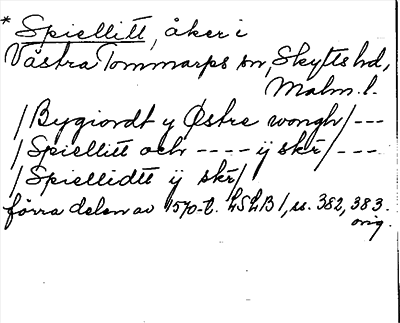 * Spiellitt, åker i
Västra Tommarps sn, Skytts hd,
Malm.l.
/Bygiordt y Østre wongh/---
/Spiellitt och ---- ij skr/---
/Spiellidtt ij skr/
förra delen av 1570-t. LSLB1, ss. 382, 383.
orig.